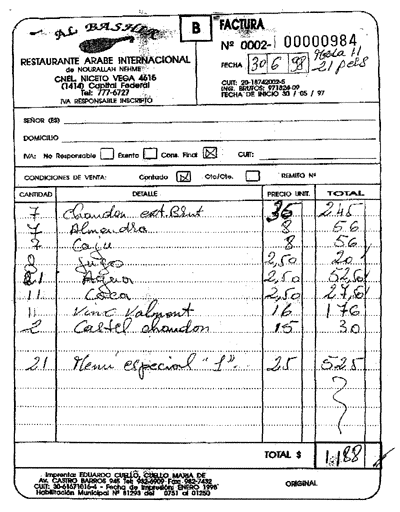 AL BASHIR
B
FACTURA
Nº 0002- 00000984
RESTAURANTE ARABE INTERNACIONAL
de NOURALLAH NEHME
CNEL. NICETO VEGA 4616
(1414) Capital Federal
Tel: 777-6727
IVA RESPONSABLE INSCRIPTO
FECHA 30 6 98
Mesa 11
21 pers
CUIT: 20-18742002-5
ING. BRUTOS: 971826-09
FECHA DE INICIO 30 / 05 / 97
SEÑOR (ES)
DOMICILIO
IVA: No Responsable Exento Cons. Final CUIT:
CONDICIONES DE VENTA: Contado Cta/Cte. REMITO Nº
CANTIDAD DETALLE PRECIO UNIT. TOTAL
7 Chandon ext. Brut 35 245
7 Almendra 8 56
7 Caju 8 56
8 Jugos 2,50 20
21 Agua 2,50 52,50
11 Coca 2,50 27,50
11 Vino Valmont 16 176
2 Castel chandon 15 30
21 Menú especial "1" 25 525
TOTAL $ 1.188
Imprenta: EDUARDO CUELLO, CUELLO MARIA DE
Av. CASTRO BARROS 945 Tel: 932-6909 Fax: 982-7432
CUIT: 30-61671016-4 - Fecha de Impresión: ENERO 1998
Habilitación Municipal Nº 81293 del 0751 al 01250
ORIGINAL